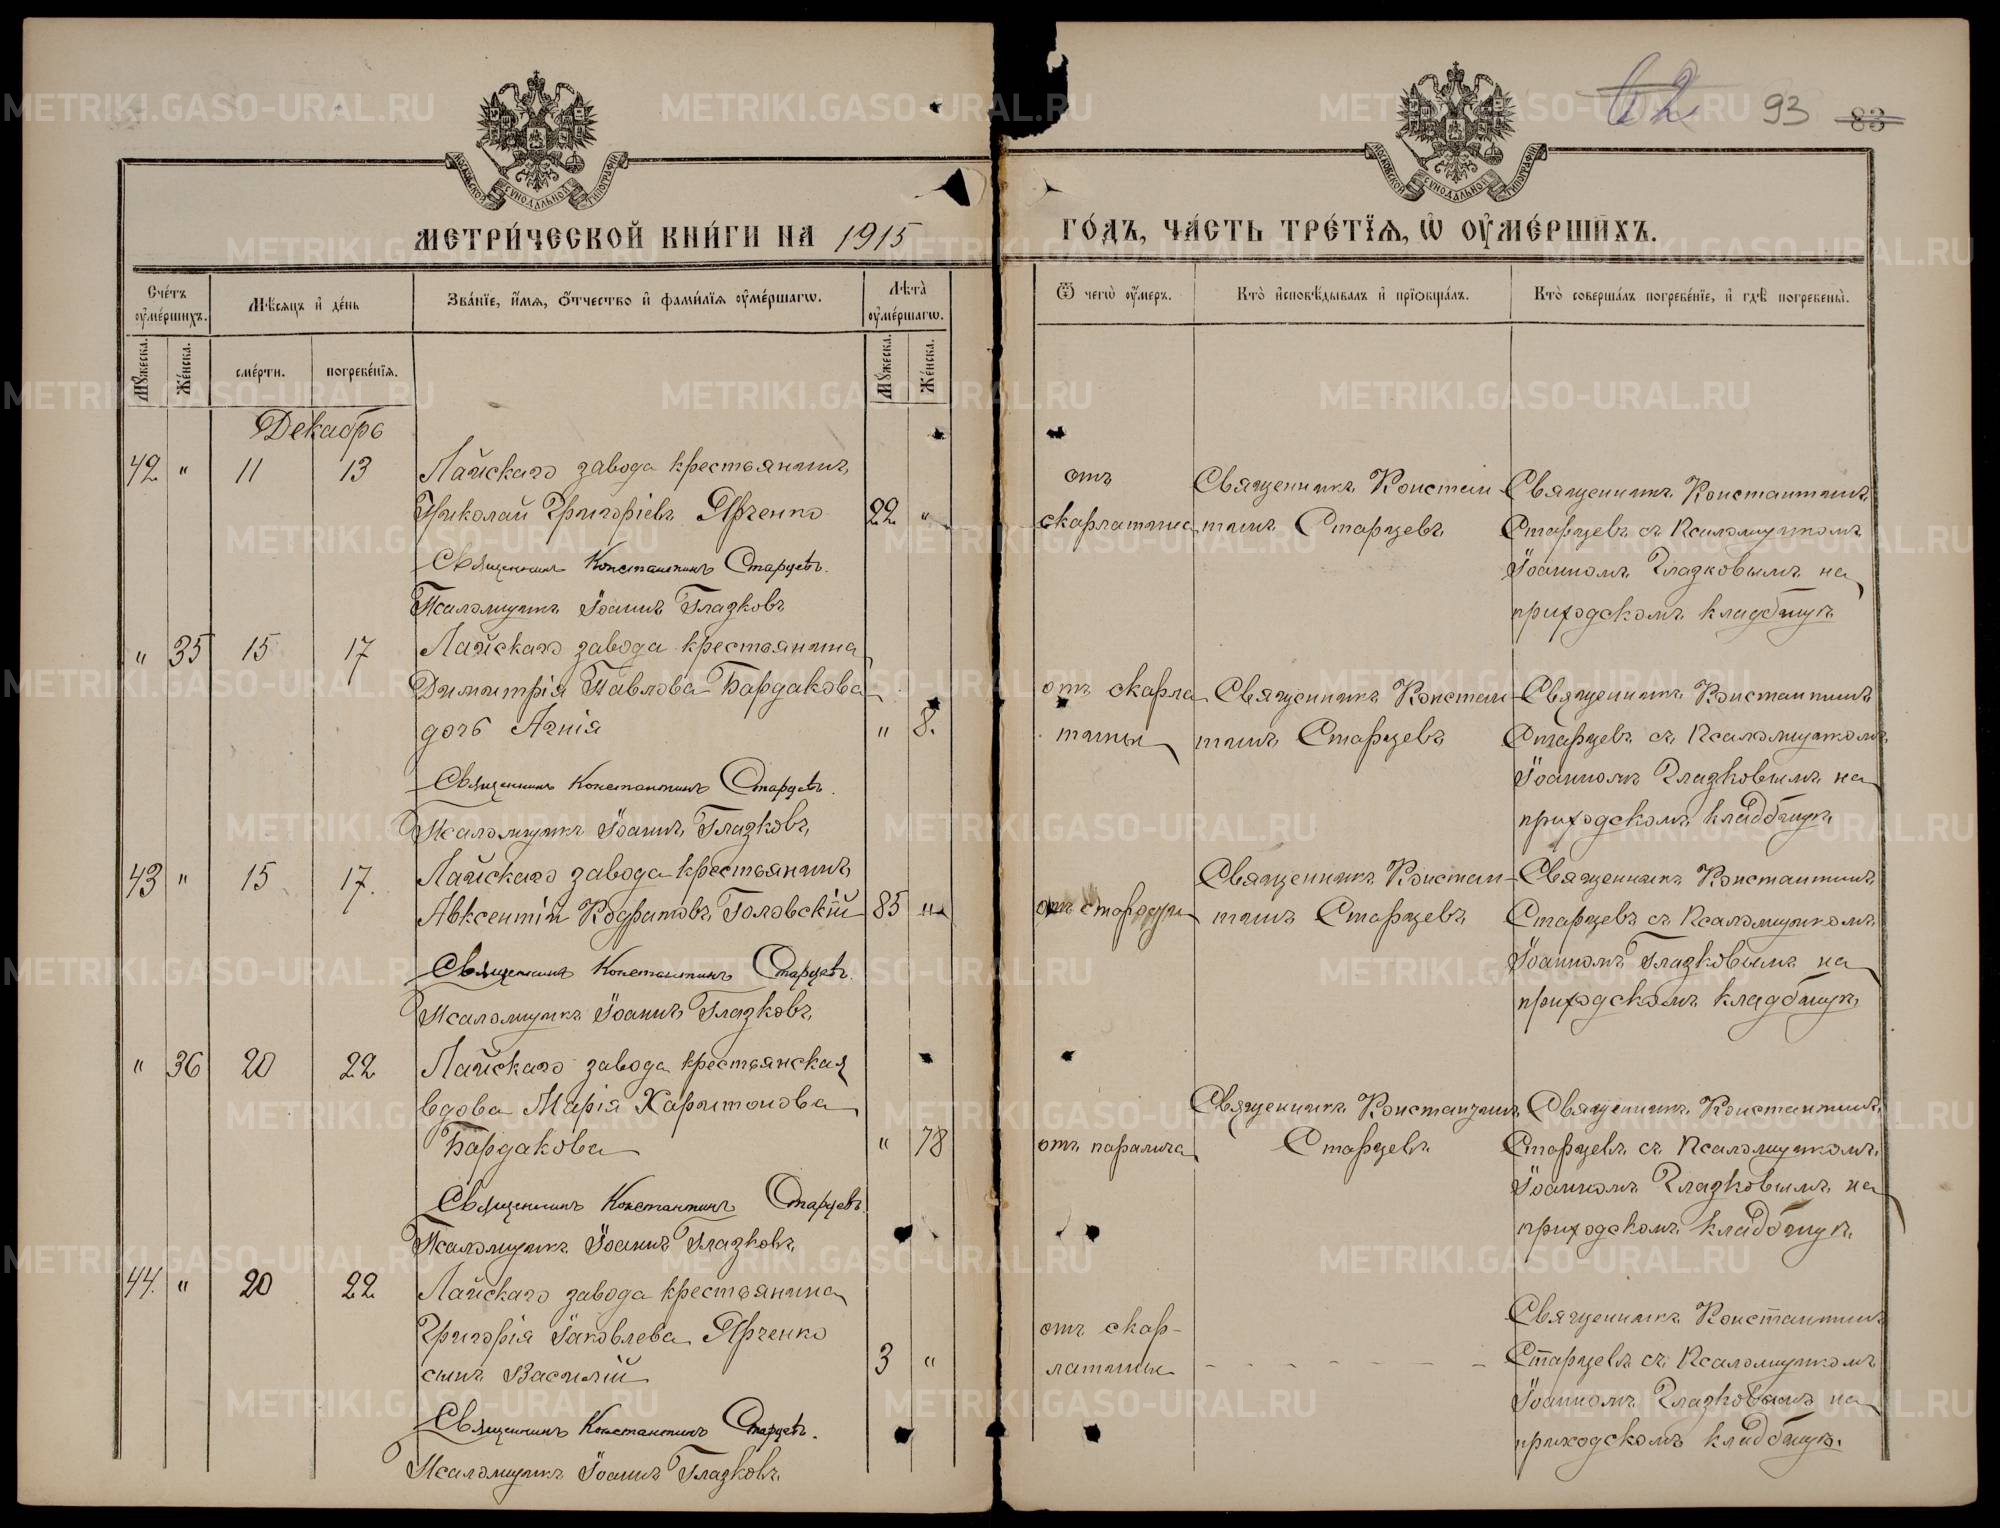 62 93 83
МОСКОВСКОЙ СѴНОДАЛЬНОЙ ТИПОГРАФІИ
МОСКОВСКОЙ СѴНОДАЛЬНОЙ ТИПОГРАФІИ
МЕТРИ́ЧЕСКОЙ КНИ́ГИ НА 1915 ГО́ДЪ, ЧА́СТЬ ТРЕ́ТЇѦ, Ѡ҆ ОУ҆МЕ́РШИХЪ.
Сче́тъ оу҆ме́ршихъ.
Мꙋ́жеска.
Же́нска.
Мѣ́сѧцъ и҆ де́нь
сме́рти.
погребе́нїѧ.
Зва́нїе, и҆́мѧ, ѻ҆́тчество и҆ фами́лїѧ оу҆ме́ршагѡ.
Лѣ̑та оу҆ме́ршагѡ.
Мꙋ́жеска.
Же́нска.
Ѿ чегѡ̀ оу҆́меръ.
Кто̀ и҆сповѣ́дывалъ и҆ прїѡбща́лъ.
Кто̀ соверша́лъ погребе́нїе, и҆ гдѣ̀ погребены̀.
Декабрь
42 " 11 13 Лайскаго завода крестьянинъ
Николай Григоріевъ Ярченко 22 "
Священникъ Константинъ Старцевъ.
Псаломщикъ Іоаннъ Глазковъ
отъ
скарлатины
Священникъ Констан-
тинъ Старцевъ
Священникъ Константинъ
Старцевъ съ Псаломщикомъ
Іоанномъ Глазковымъ на
приходскомъ кладбищѣ
" 35 15 17 Лайскаго завода крестьянина
Димитрія Павлова Бардакова
дочь Агнія " 8.
Священникъ Константинъ Старцевъ.
Псаломщикъ Іоаннъ Глазковъ
отъ скарла
тины
Священникъ Констан-
тинъ Старцевъ
Священникъ Константинъ
Старцевъ съ Псаломщикомъ
Іоанномъ Глазковымъ на
приходскомъ кладбищѣ
43 " 15 17. Лайскаго завода крестьянинъ
Авксентій Кодратовъ Головскій 85 "
Священникъ Константинъ Старцевъ.
Псаломщикъ Іоаннъ Глазковъ
отъ старости
Священникъ Констан-
тинъ Старцевъ
Священникъ Константинъ
Старцевъ съ Псаломщикомъ
Іоанномъ Глазковымъ на
приходскомъ кладбищѣ
" 36 20 22 Лайскаго завода крестьянская
вдова Марія Харитонова
Бардакова " 78
Священникъ Константинъ Старцевъ.
Псаломщикъ Іоаннъ Глазковъ
отъ паралича
Священникъ Константинъ
Старцевъ
Священникъ Константинъ
Старцевъ съ Псаломщикомъ
Іоанномъ Глазковымъ на
приходскомъ кладбищѣ
44. " 20 22 Лайскаго завода крестьянина
Григорія Іаковлева Ярченко
сынъ Василій 3 "
Священникъ Константинъ Старцевъ.
Псаломщикъ Іоаннъ Глазковъ
отъ скар-
латины
Священникъ Константинъ
Старцевъ съ Псаломщикомъ
Іоанномъ Глазковымъ на
приходскомъ кладбищѣ.
METRIKI.GASO-URAL.RU